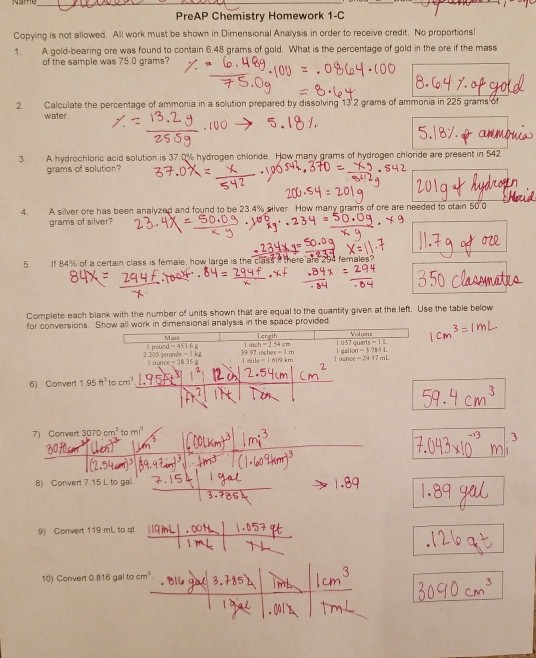 Name
PreAP Chemistry Homework 1-C
Copying is not allowed. All work must be shown in Dimensional Analysis in order to receive credit. No proportions!
1. A gold-bearing ore was found to contain 6.48 grams of gold. What is the percentage of gold in the ore if the mass
of the sample was 75.0 grams?
% = 6.48g / 75.0g .100 = .0864.100
= 8.64
8.64 % of gold
2. Calculate the percentage of ammonia in a solution prepared by dissolving 13.2 grams of ammonia in 225 grams of
water.
% = 13.2g / 255g .100 → 5.18%
5.18% of ammonia
3. A hydrochloric acid solution is 37.0% hydrogen chloride. How many grams of hydrogen chloride are present in 542
grams of solution?
37.0% = x / 542 .100 542 .370 = x g / 542g . 542
200.54 = 201g
201g of hydrogen
4. A silver ore has been analyzed and found to be 23.4% silver. How many grams of ore are needed to otain 50.0
grams of silver?
23.4% = 50.0g / x g .100 .234 = 50.0g / x g . x g
.234xg = 50.0g X = 11.7
.234 .234
11.7 g of ore
5. If 84% of a certain class is female, how large is the class if there are 294 females?
84% = 294f / x .100% .84 = 294f / x . xf .84x = 294
.84 .84
350 classmates
Complete each blank with the number of units shown that are equal to the quantity given at the left. Use the table below
for conversions. Show all work in dimensional analysis in the space provided.
1cm³ = 1mL
Mass Length Volume
1 pound = 453.6 g 1 inch = 2.54 cm 1.057 quarts = 1 L
2.205 pounds = 1 kg 39.97 inches = 1 m 1 gallon = 3.785 L
1 ounce = 28.35 g 1 mile = 1.609 km 1 ounce = 29.57 mL
6) Convert 1.95 ft³ to cm³
1.95ft³ 1² 12 in 2.54cm cm²
1ft² 1ft 1in
59.4 cm³
7) Convert 3070 cm³ to mi³
3070cm³ (1in)³ 1m³ (.001km)³ 1mi³
(2.54cm)³ (39.97in)³ 1m³ (1.609km)³
7.043x10⁻¹³ mi³
8) Convert 7.15 L to gal.
7.15L 1 gal → 1.89
3.785L
1.89 gal
9) Convert 119 mL to qt.
119mL .001L 1.057 qt
1mL 1L
.126 qt
10) Convert 0.816 gal to cm³
.816 gal 3.785L 1mL 1cm³
1 gal .001L 1mL
3090 cm³